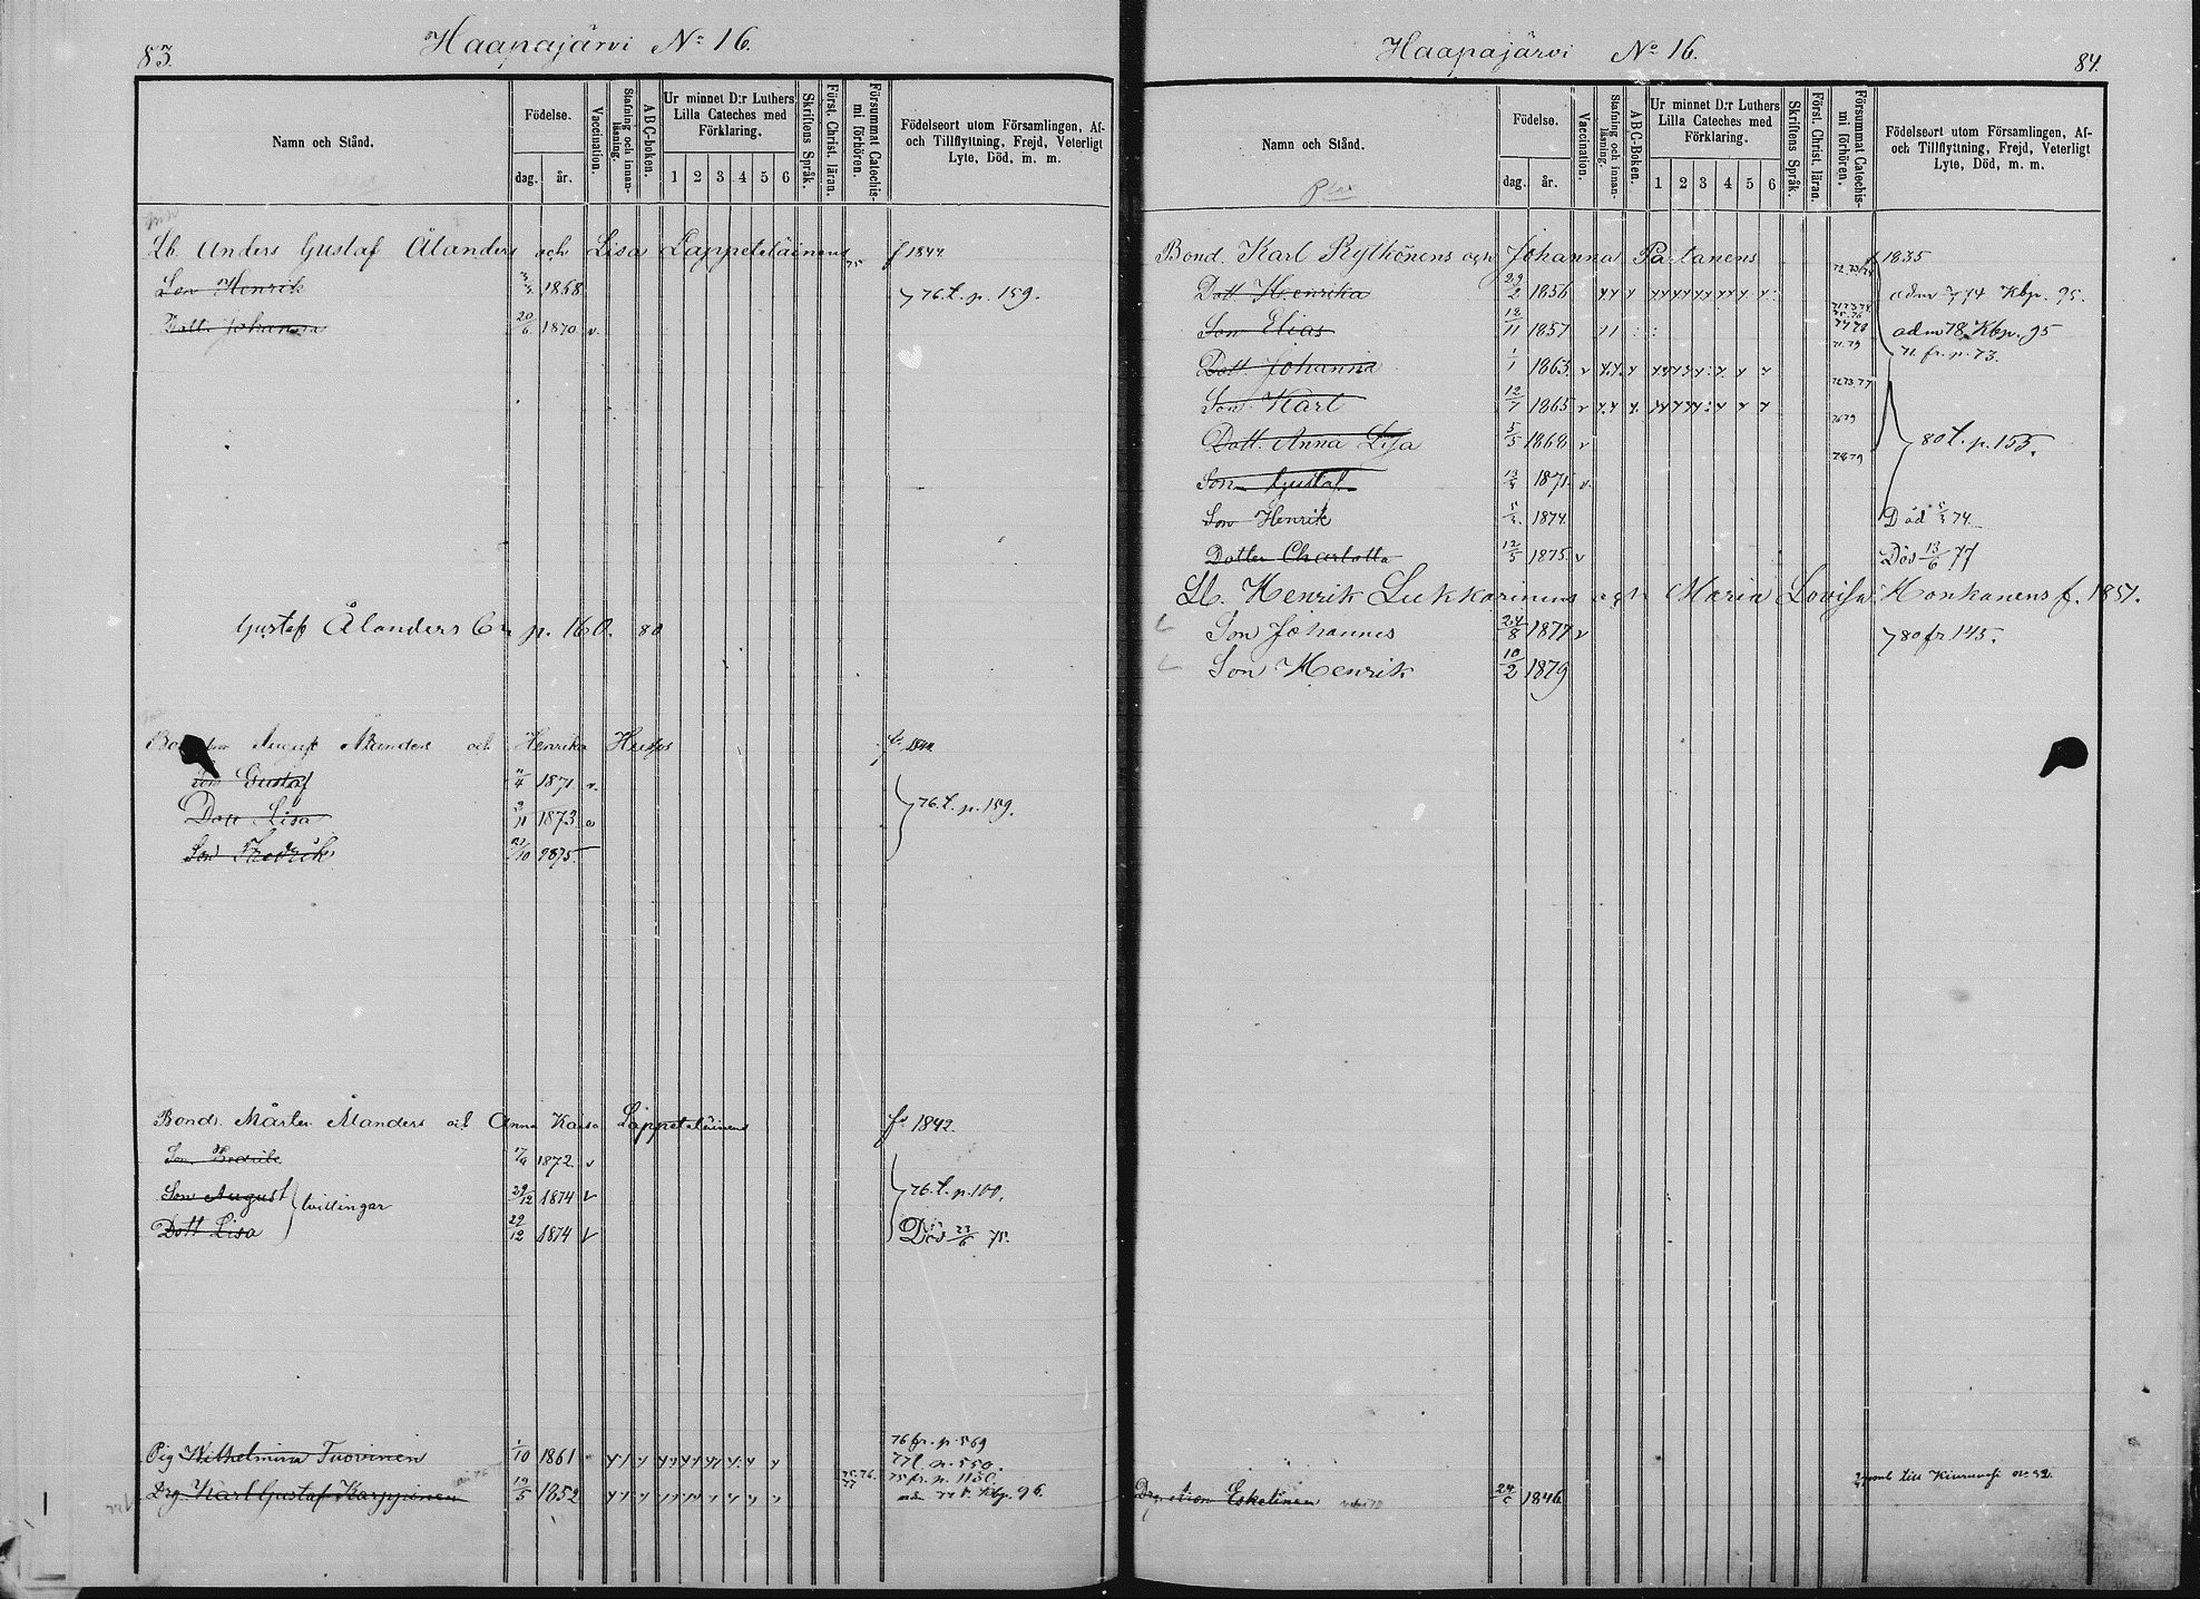 83.
Haapajärvi No 16.
Namn och Stånd.
Födelse.
dag.
år.
Vaccination.
Stafning och innanläsning.
ABC-boken.
Ur minnet D:r Luthers Lilla Cateches med Förklaring.
1 2 3 4 5 6
Skriftens Språk.
Först. Christ. läran.
Försummat Catechismi förhören.
Födelseort utom Församlingen, Af- och Tillflyttning, Frejd, Veterligt Lyte, Död, m. m.
Lb. Anders Gustaf Ålanders och Lisa Lappeteläinens 75 f 1844
Son Henrik 1868 76 t. p. 159.
Dott. Johanna 20/6 1870 v.
Gustaf Ålanders p. 160. 80
August Ålanders och Henrika Huttus
Son Gustaf 1871 v.
Dott Lisa 1873 76. t. p. 159.
Son Fredrik
Bond. Mårten Ålanders och Anna Kaisa Lappeteläinens f. 1842.
Son Fredrik 1872. v
Son August 29/12 1874 v 76. t. p. 100.
tvillingar
Dott Lisa 29/12 1874 v Död 23/6 75.
76 fr. p. 569
Pig Wilhelmina Tuovinen 1/10 1861 77 t. p. 550.
Drg. Karl Gustaf Karppinen 19/5 1852 75. 76. 77 75 fr. p. 1130.
Kbp. 96.
Haapajärvi No 16.
84.
Namn och Stånd.
Födelse.
dag.
år.
Vaccination.
Stafning och innanläsning.
ABC-Boken.
Ur minnet D:r Luthers Lilla Cateches med Förklaring.
1 2 3 4 5 6
Skriftens Språk.
Först. Christ. läran.
Försummat Catechismi förhören.
Födelseort utom Församlingen, Af- och Tillflyttning, Frejd, Veterligt Lyte, Död, m. m.
Bond. Karl Rytkönens och Johanna Partanens f 1835
Dott Henrika 29/2 1856 adm 74 Kbp. 95.
Son Elias 18/11 1857 adm 78 Kbp. 95
71. fr. p. 73.
Dott. Johanna 1/1 1863 v
Son Karl 12/7 1865 v
Dott. Anna Lisa 5/5 1868 v 80 t. p. 155.
Son Gustaf 1871. v.
Son Henrik 1874. Död 74.
Dotter Charlotta 12/5 1875 v Död 13/6 77
Lb. Henrik Lukkarinens och Maria Lovisa Honkanens f. 1851.
Son Johannes 24/8 1877 v 80 fr 145.
Son Henrik 10/2 1879
Drg Aron Eskelinen 1846 till Kiuruvesi